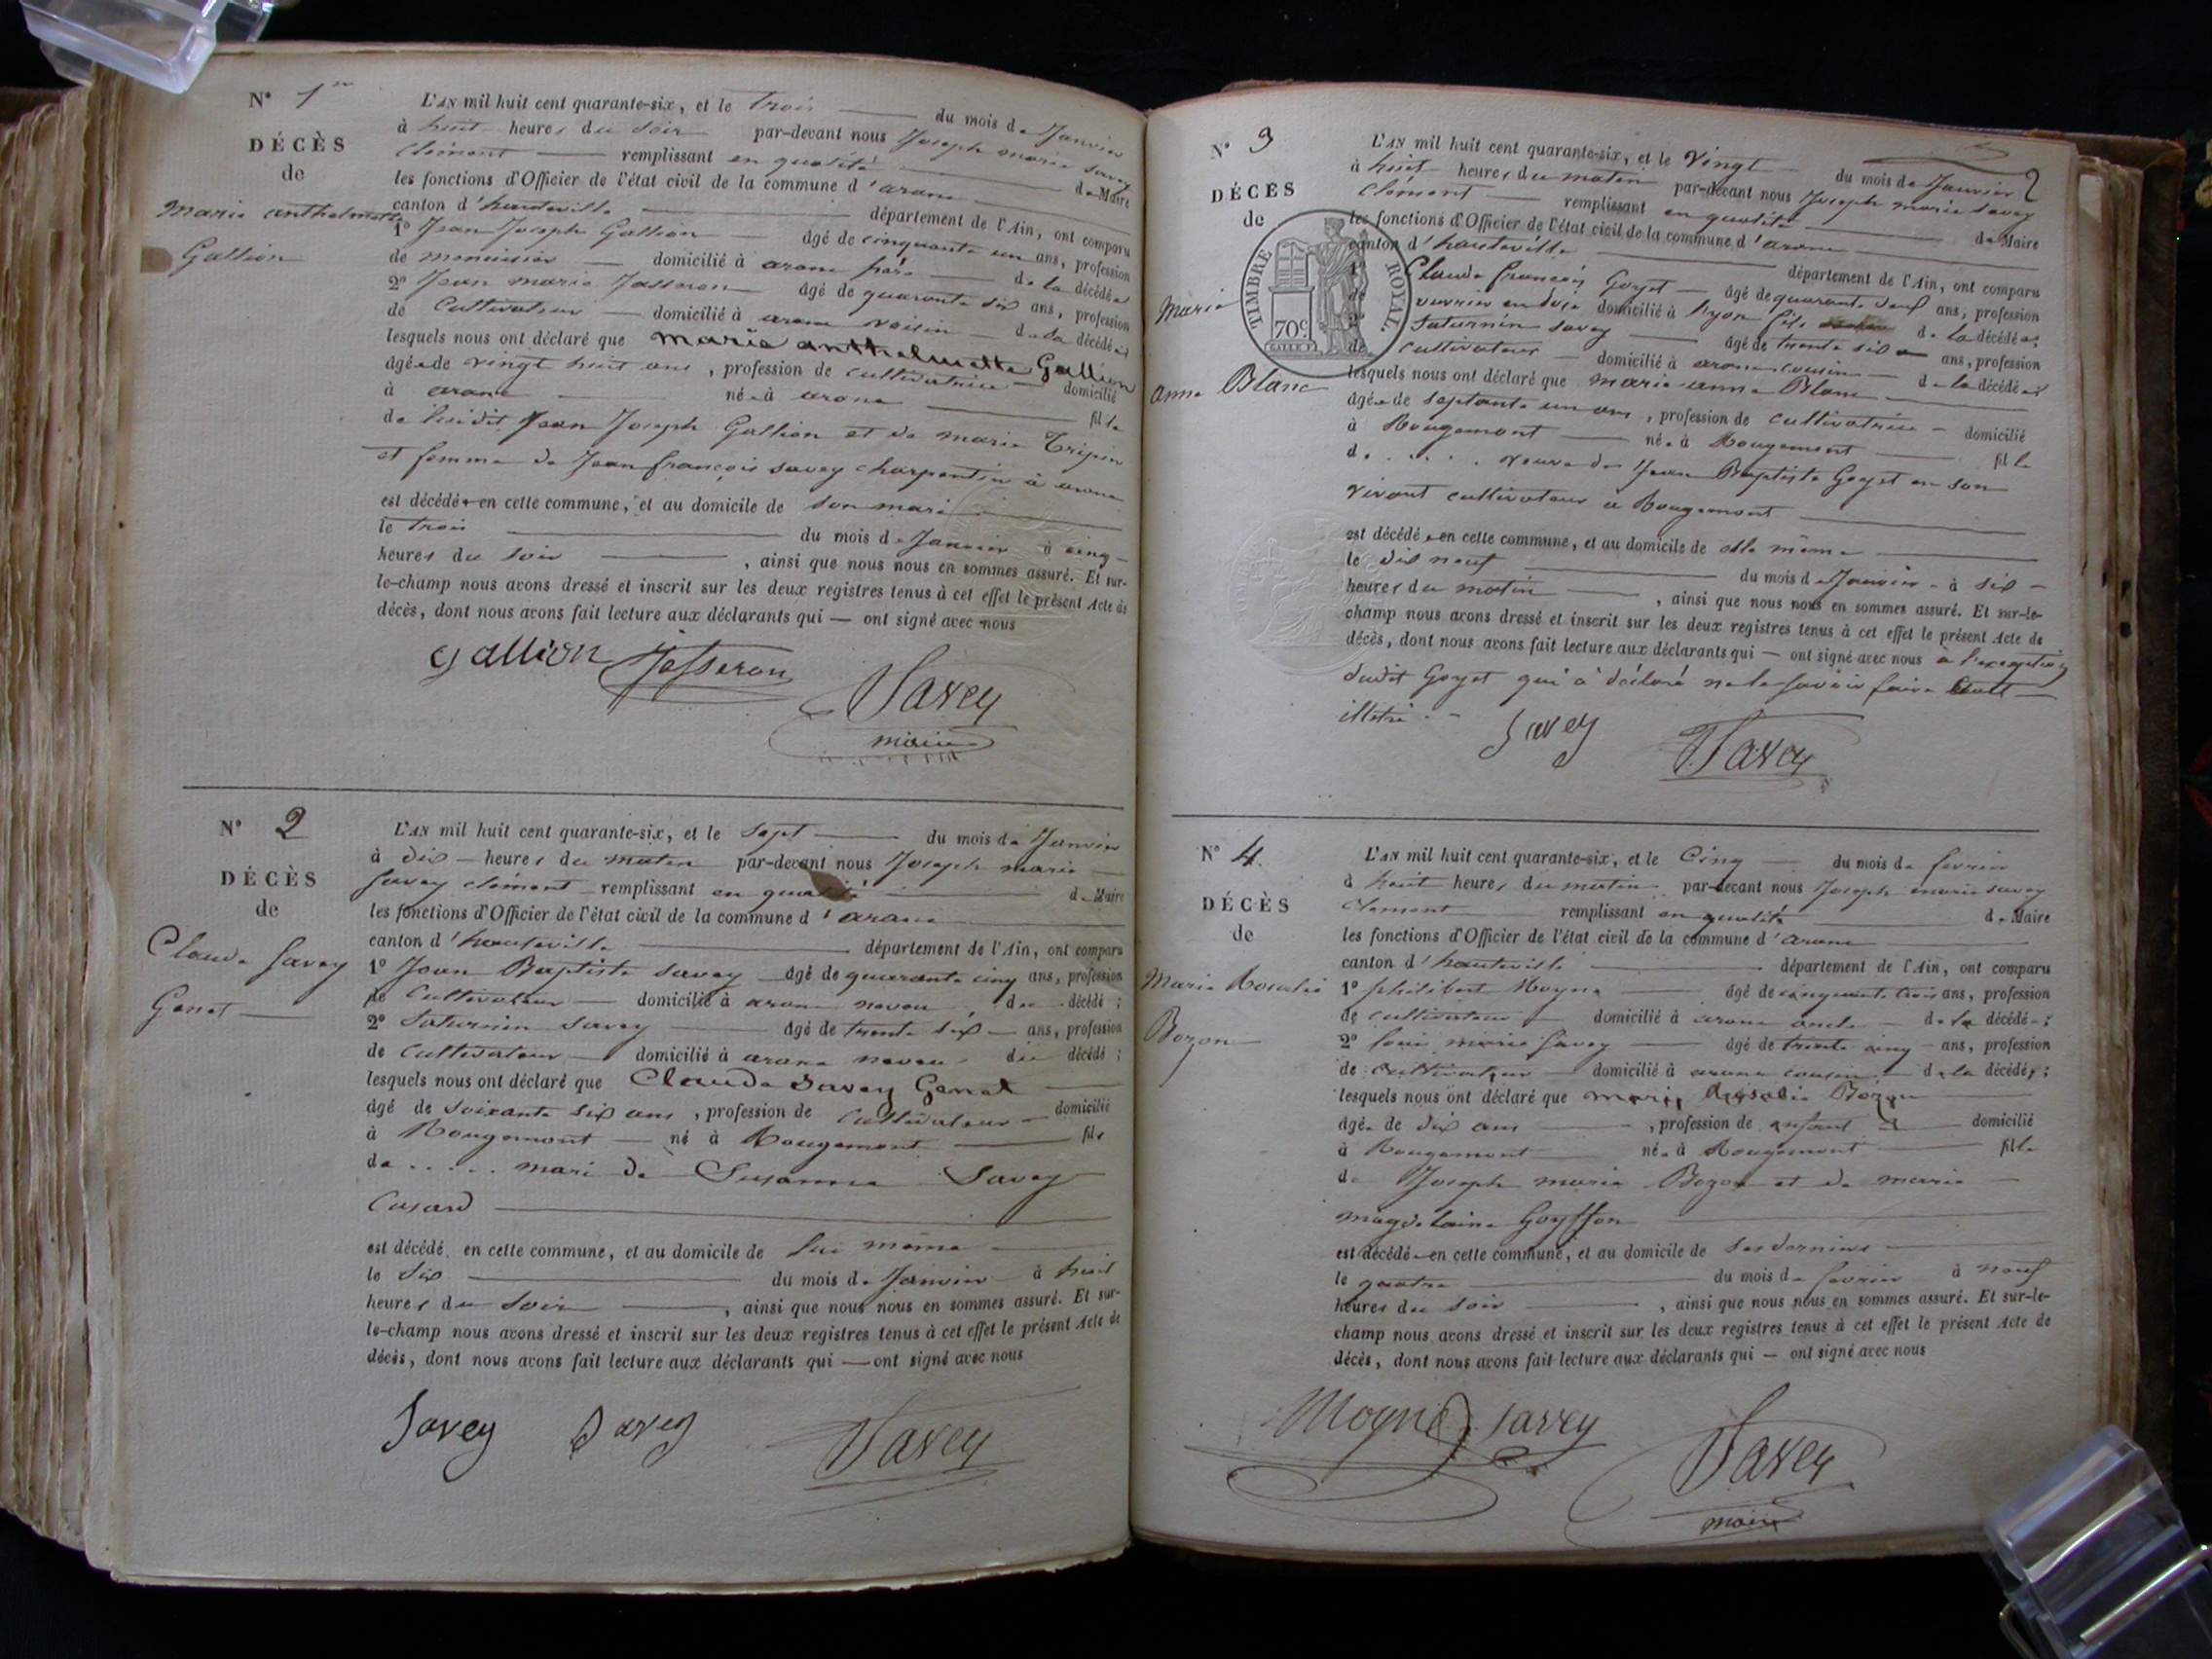 N° 1er
DÉCÈS
de
Marie anthelmette
Gallion
L'AN mil huit cent quarante-six, et le trois du mois de Janvier
à huit heures du soir par-devant nous Joseph marie savey
clément remplissant en qualité de Maire
les fonctions d'Officier de l'état civil de la commune d'arane
canton d'hauteville département de l'Ain, ont comparu
1° Jean Joseph Gallion âgé de cinquante un ans, profession
de menuisier domicilié à arane père de la décédée
2° Jean marie Josseron âgé de quarante six ans, profession
de Cultivateur domicilié à arane voisin de la décédée
lesquels nous ont déclaré que marie anthelmette Gallion
âgée de vingt huit ans, profession de cultivatrice domicilié
à arane née à arane fille
de susdit Jean Joseph Gallion et de marie Tripier
et femme de Jean françois savey charpentier à arane
est décédée en cette commune, et au domicile de son mari
le trois du mois de Janvier à cinq
heures du soir, ainsi que nous nous en sommes assuré. Et sur-
le-champ nous avons dressé et inscrit sur les deux registres tenus à cet effet le présent Acte de
décès, dont nous avons fait lecture aux déclarants qui — ont signé avec nous
Gallion Josseron
Savey
maire
N° 2
DÉCÈS
de
Claude Savey
Genet
L'AN mil huit cent quarante-six, et le sept du mois de Janvier
à dix heures du matin par-devant nous Joseph marie
Savey clément remplissant en qualité de Maire
les fonctions d'Officier de l'état civil de la commune d'arane
canton d'hauteville département de l'Ain, ont comparu
1° Jean Baptiste savey âgé de quarante cinq ans, profession
de Cultivateur domicilié à arane neveu, du décédé ;
2° Saturnin Savey âgé de trente six ans, profession
de Cultivateur domicilié à arane neveu du décédé ;
lesquels nous ont déclaré que Claude Savey Genet
âgé de soixante six ans, profession de Cultivateur domicilié
à Rougemont né à Rougemont fils
de ..... mari de Susanne Savey
Cusard
est décédé en cette commune, et au domicile de lui même
le six du mois de Janvier à huit
heures du soir, ainsi que nous nous en sommes assuré. Et sur-
le-champ nous avons dressé et inscrit sur les deux registres tenus à cet effet le présent Acte de
décès, dont nous avons fait lecture aux déclarants qui — ont signé avec nous
Savey Savey Savey
2
N° 3
DÉCÈS
de
Marie
anne Blanc
TIMBRE ROYAL.
70c
L'AN mil huit cent quarante-six, et le vingt du mois de Janvier
à huit heures du matin par-devant nous Joseph marie savey
Clément remplissant en qualité de Maire
les fonctions d'Officier de l'état civil de la commune d'arane
canton d'hauteville département de l'Ain, ont comparu
1° Claude françois Goyet âgé de quarante neuf ans, profession
de ouvrier en soye domicilié à lyon fils de la décédée ;
2° Saturnin savey âgé de trente six ans, profession
de cultivateur domicilié à arane cousin de la décédée
lesquels nous ont déclaré que marie anne Blanc
âgée de septante un ans, profession de cultivatrice domicilié
à Rougemont née à Rougemont fille
d. ..... veuve de Jean Baptiste Goyet en son
vivant cultivateur à Rougemont
est décédée en cette commune, et au domicile de elle même
le dix neuf du mois de Janvier à six
heures du matin, ainsi que nous nous en sommes assuré. Et sur-le-
champ nous avons dressé et inscrit sur les deux registres tenus à cet effet le présent Acte de
décès, dont nous avons fait lecture aux déclarants qui — ont signé avec nous à l'exception
dudit Goyet qui a déclaré ne le savoir faire étant
illetré. Savey Savey
N° 4.
DÉCÈS
de
Marie Rosalie
Bozon
L'AN mil huit cent quarante-six, et le Cinq du mois de fevrier
à huit heures du matin par-devant nous Joseph marie savey
Clement remplissant en qualité de Maire
les fonctions d'Officier de l'état civil de la commune d'arane
canton d'hauteville département de l'Ain, ont comparu
1° philibert Moyne âgé de cinquante trois ans, profession
de cultivateur domicilié à arane oncle de la décédée ;
2° louis marie Savey âgé de trente cinq ans, profession
de cultivateur domicilié à arane cousin de la décédée ;
lesquels nous ont déclaré que marie Rosalie Bozon
âgée de dix ans, profession de enfant domicilié
à Rougemont née à Rougemont fille
de Joseph marie Bozon et de marie
magdelaine Goyffon
est décédée en cette commune, et au domicile de ses derniers
le quatre du mois de fevrier à neuf
heures du soir, ainsi que nous nous en sommes assuré. Et sur-le-
champ nous avons dressé et inscrit sur les deux registres tenus à cet effet le présent Acte de
décès, dont nous avons fait lecture aux déclarants qui — ont signé avec nous
Moyne Savey
Savey
maire